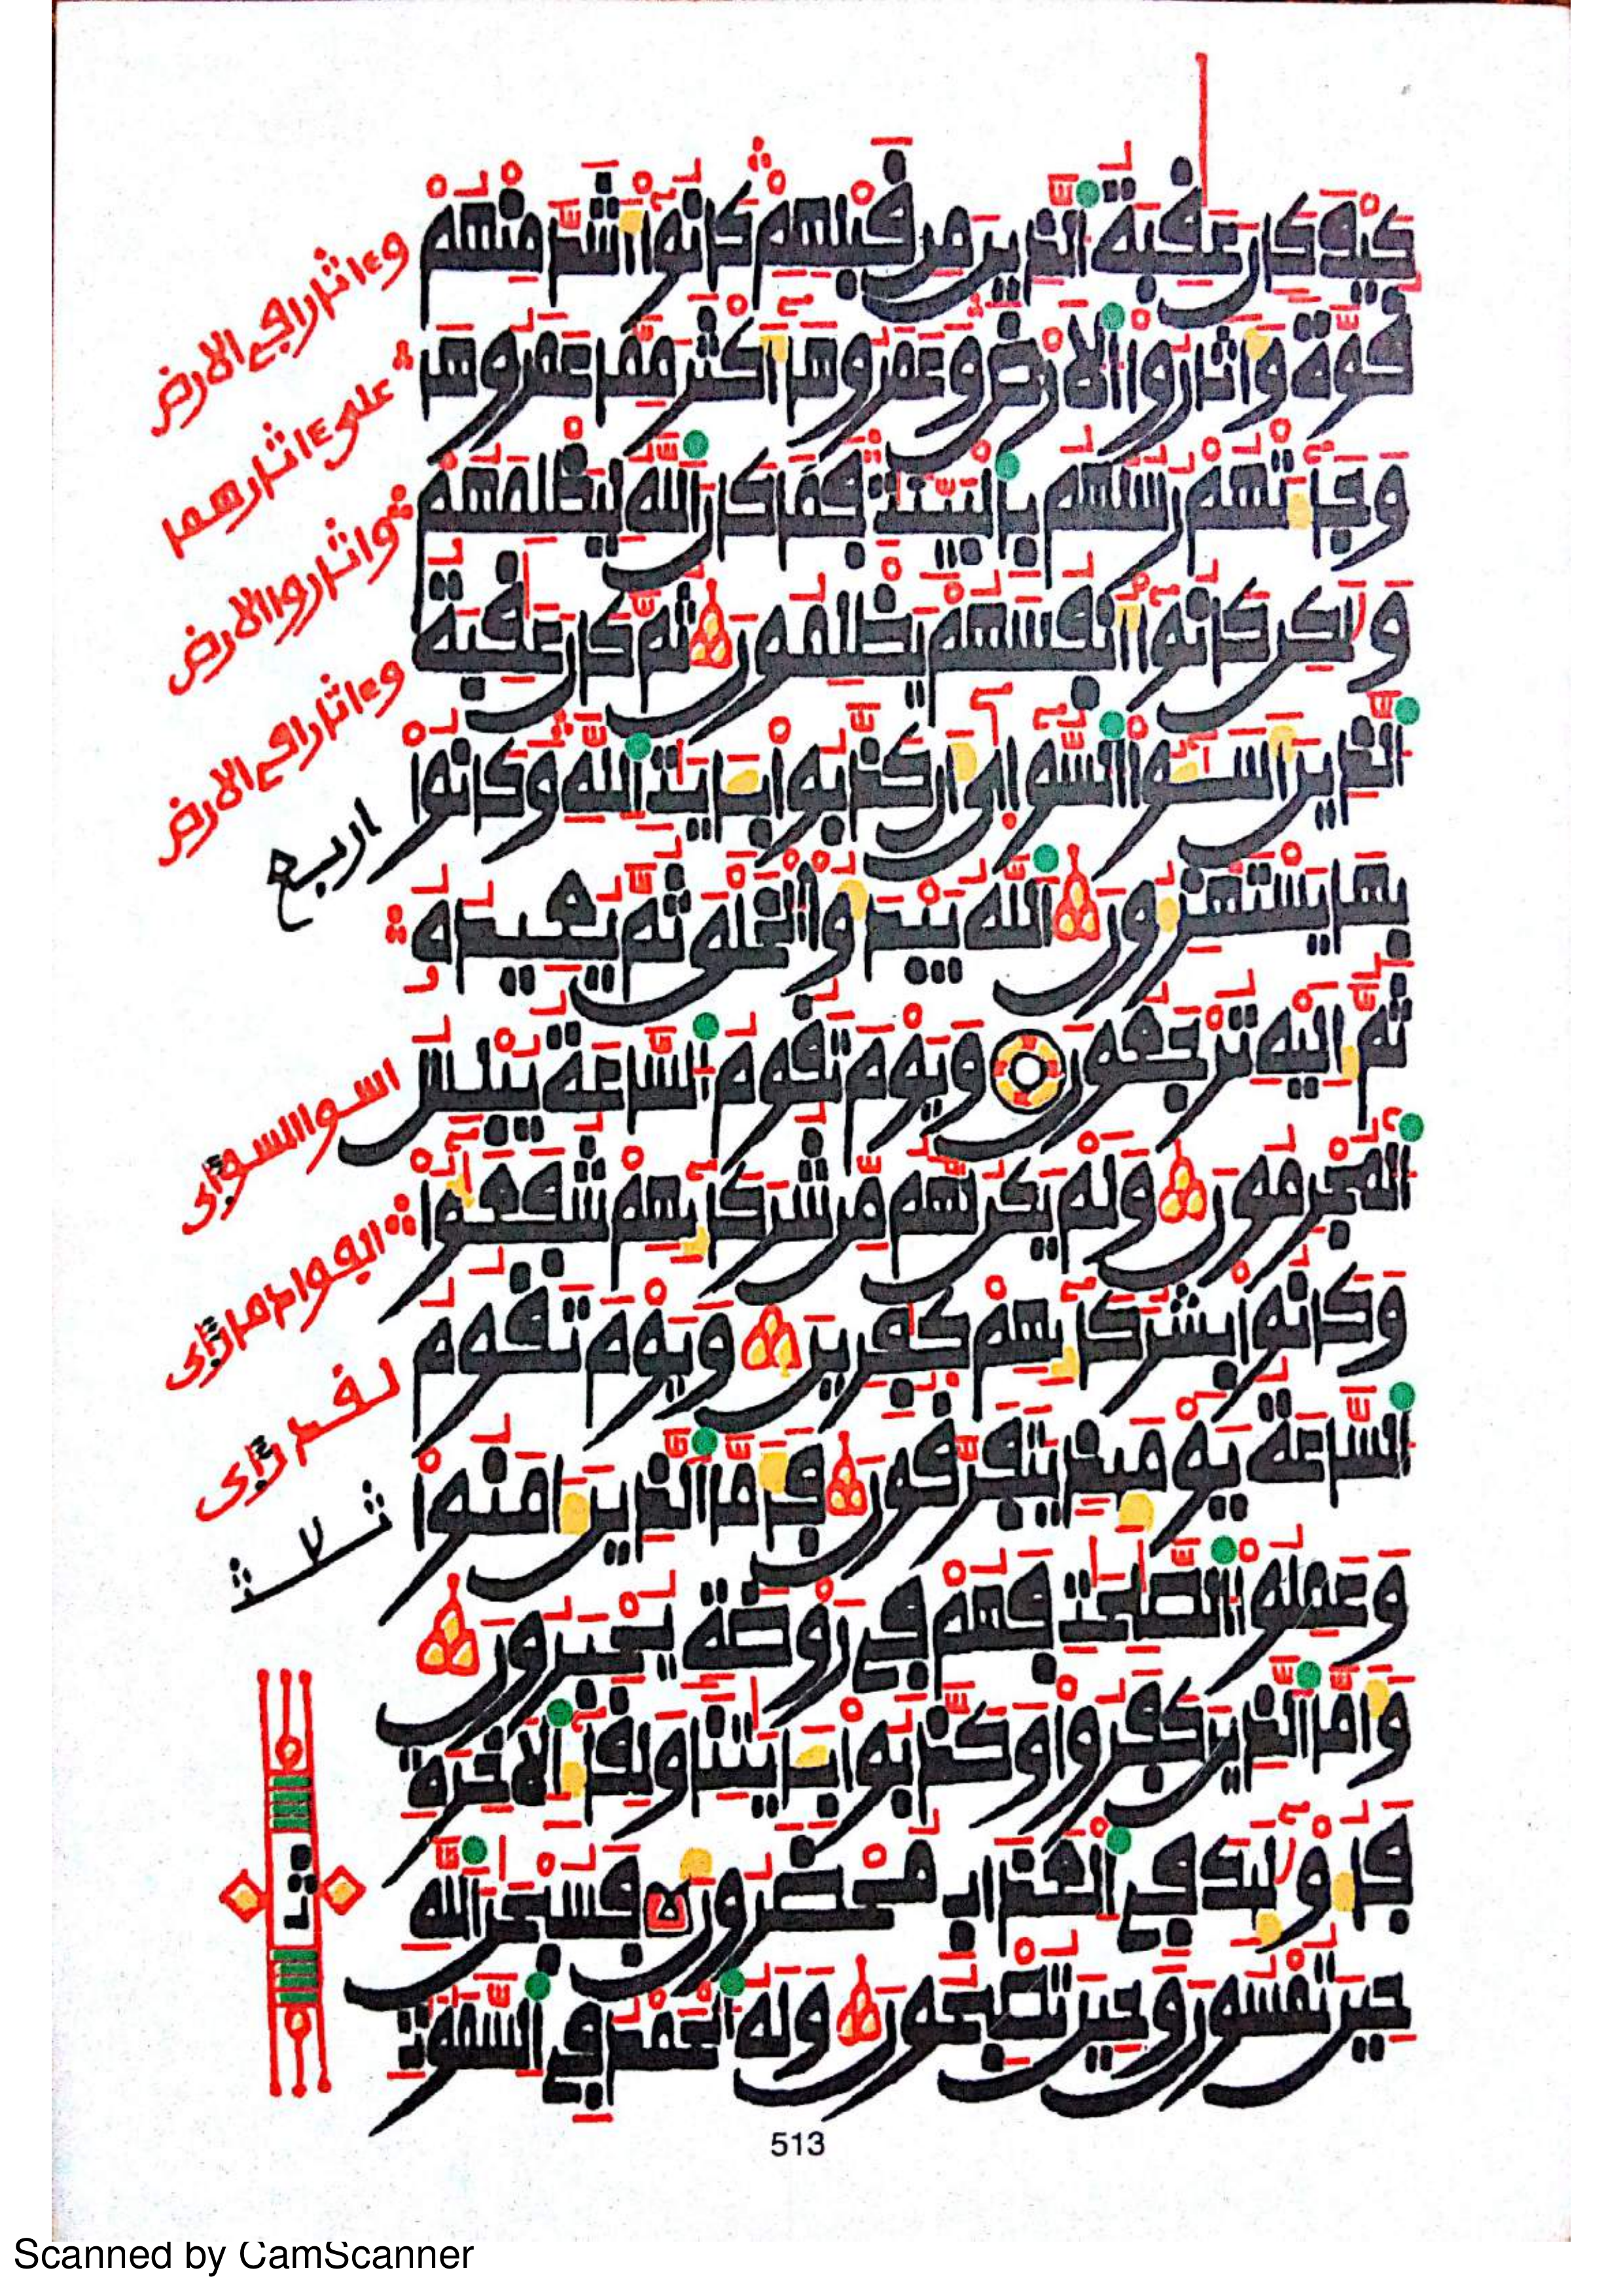 كيف كان عٰقبة ٱلذين من قبلهم كانوا أشد منهم
قوة وأثاروا ٱلارض وعمروها أكثر مما عمروها
وجاءتهم رسلهم بٱلبينٰت فما كان ٱلله ليظلمهم
ولٰكن كانوا أنفسهم يظلمون ثم كان عٰقبة
ٱلذين أسٰـٔوا ٱلسوأى أن كذبوا بـٔايٰت ٱلله وكانوا
بها يستهزءون ٱلله يبدؤا ٱلخلق ثم يعيده
ثم إليه ترجعون ويوم تقوم ٱلساعة يبلس
ٱلمجرمون ولم يكن لهم من شركائهم شفعٰؤا
وكانوا بشركائهم كٰفرين ويوم تقوم
ٱلساعة يومئذ يتفرقون فأما ٱلذين ءامنوا
وعملوا ٱلصٰلحٰت فهم في روضة يحبرون
وأما ٱلذين كفروا وكذبوا بـٔايٰتنا ولقاء ٱلاخرة
فأولٰئك في ٱلعذاب محضرون فسبحٰن ٱلله
حين تمسون وحين تصبحون وله ٱلحمد في ٱلسمٰوٰت
وءاثارا في الارض
على ءاثارهما
واثاروا الارض
وءاثارا في الارض
اربع
اسوا السوأى
ثلاث
513
Scanned by CamScanner